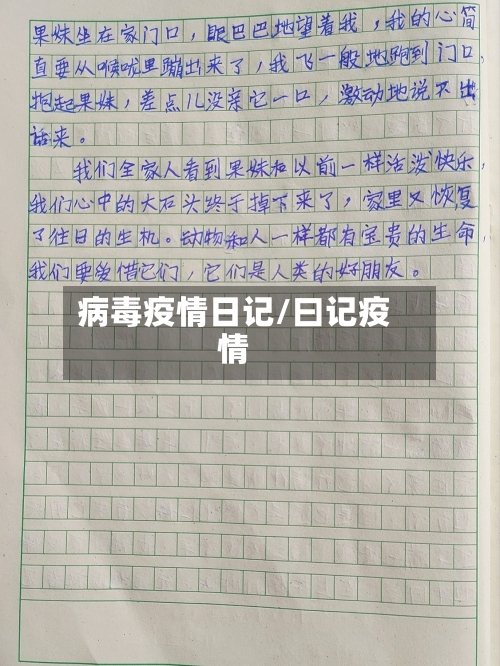 果妹坐在家门口，眼巴巴地望着我，我的心简
直要从喉咙里蹦出来了，我飞一般地跑到门口，
抱起果妹，差点儿没亲它一口，激动地说不出
话来。
我们全家人看到果妹和以前一样活泼快乐，
我们心中的大石头终于掉下来了，家里又恢复
了往日的生机。动物和人一样都有宝贵的生命，
我们要爱惜它们，它们是人类的好朋友。
病毒疫情日记/曰记疫
情